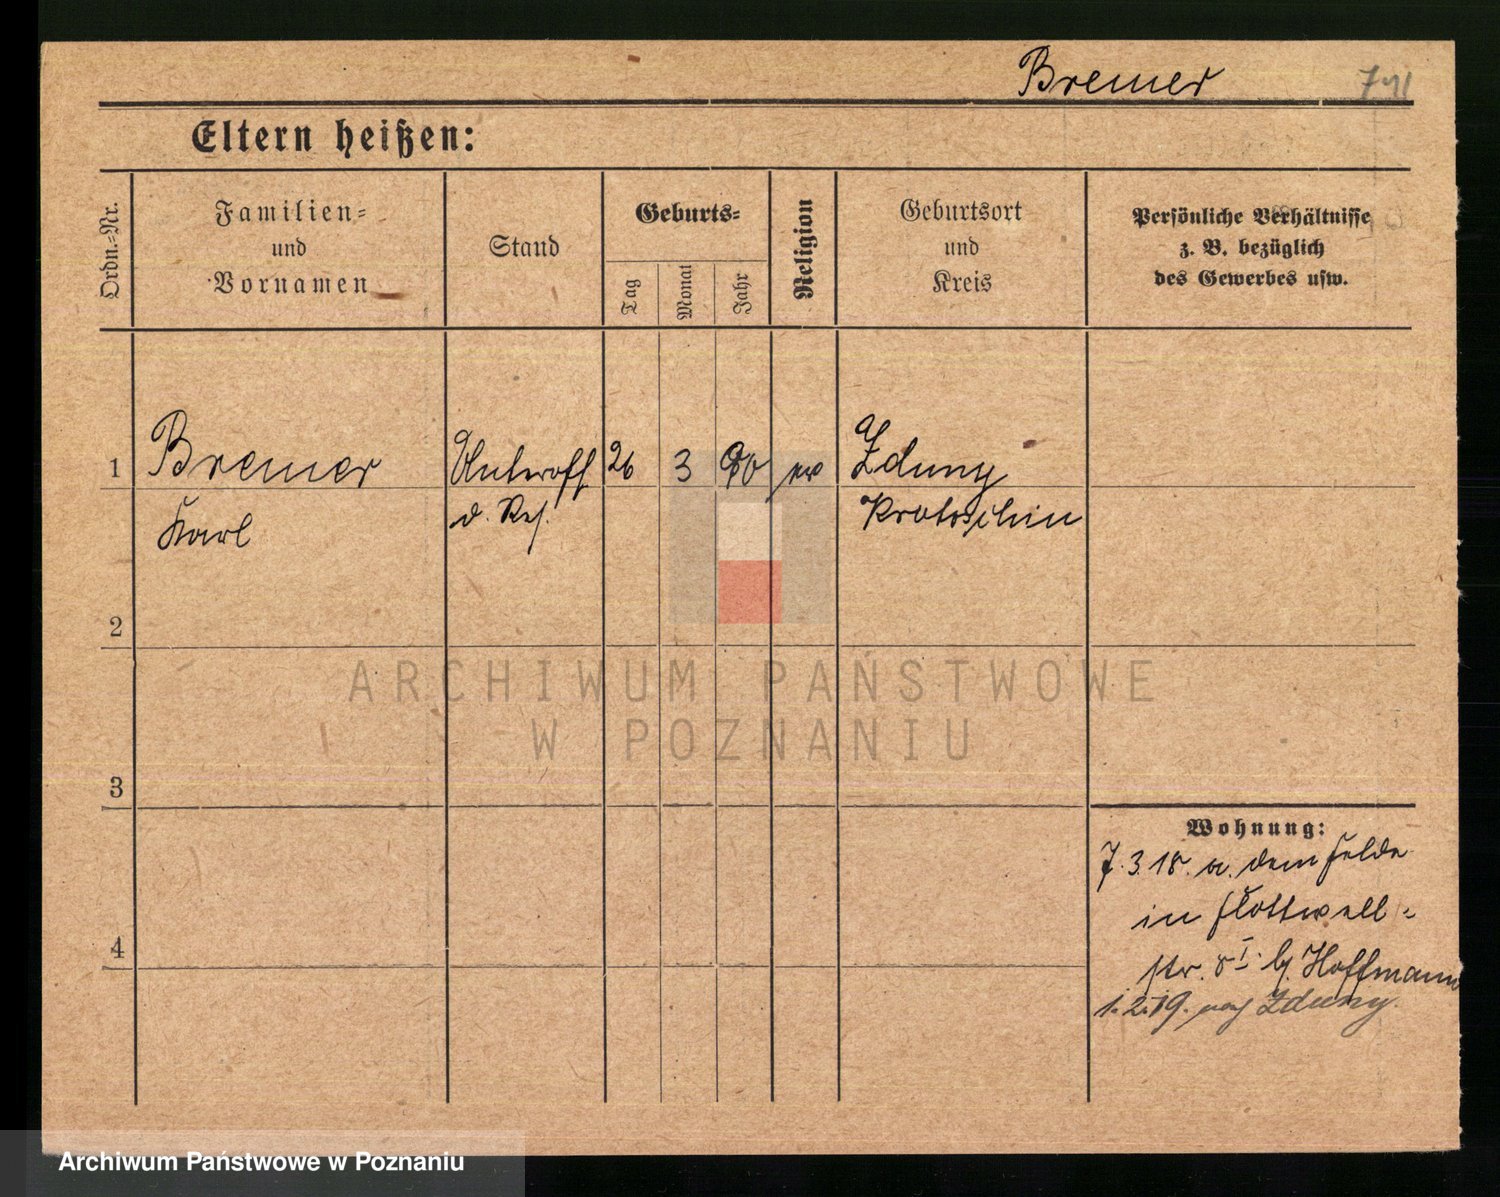 Bremer 741
Eltern heißen:
Ordn.-Nr.
Familien-
und
Vornamen
Stand
Geburts-
Tag
Monat
Jahr
Religion
Geburtsort
und
Kreis
Persönliche Verhältnisse
z. B. bezüglich
des Gewerbes usw.
1 Bremer Unteroff 26 3 90 ev Zduny
Karl d. Res. Krotoschin
2
3
4
Wohnung:
7.3.18. a. dem Felde
in Flottwell-
str. 8 I. b. Hoffmann
1.2.19. nach Zduny.
ARCHIWUM PAŃSTWOWE
W POZNANIU
Archiwum Państwowe w Poznaniu